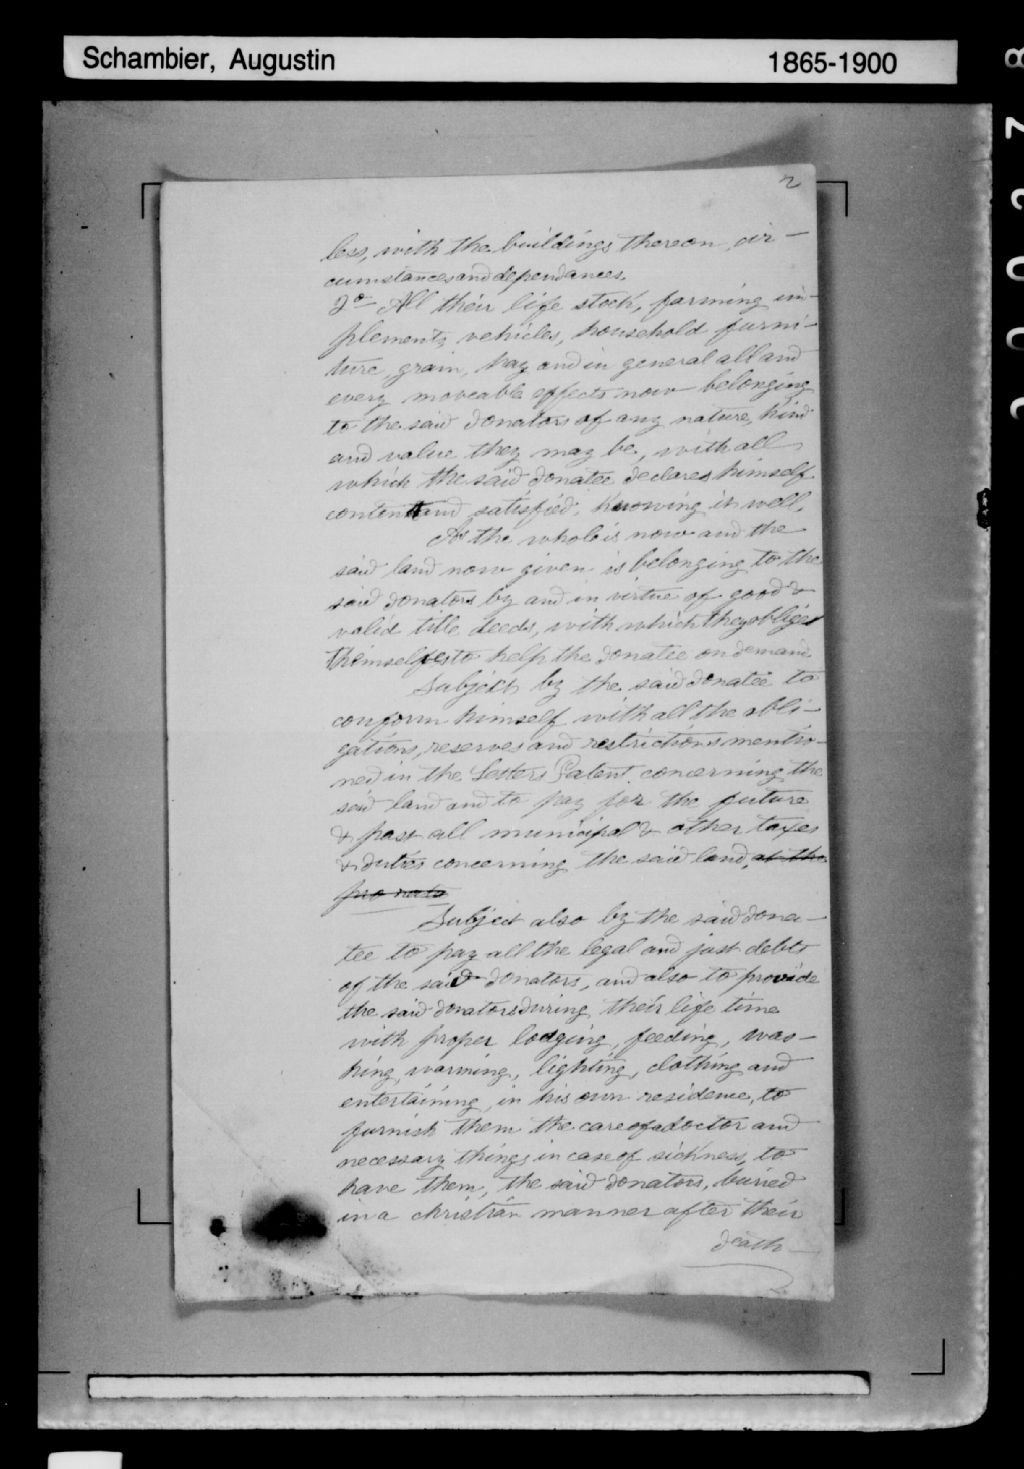 Schambier, Augustin 1865-1900
2
less, with the buildings thereon, cir-
cumstances and dependances.
2o- All their life stock, farming im-
plements, vehicles, household furni-
ture, grain, hay and in general all and
every moveable effects now belonging
to the said donators of any nature, kind
and value they may be, with all
which the said donatee declares himself
content and satisfied, knowing it well.
As the whole is now and the
said land now given is belonging to the
said donators by and in virtue of good &
valid title deeds, with which they obliges
themselfes to help the donatee on demand
Subject by the said donatee to
conform himself with all the obli-
gations, reserves and restrictions mentio-
ned in the Letters Patent concerning the
said land and to pay for the future
& past all municipal & other taxes
& duties concerning the said land, at the
pro rata
Subject also by the said dona-
tee to pay all the legal and just debts
of the said donators, and also to provide
the said donators during their life time
with proper lodging, feeding, was-
hing, warming, lighting, clothing and
entertaining, in his own residence, to
furnish them the care of a doctor and
necessary things in case of sickness, to
have them, the said donators, buried
in a christian manner after their
death